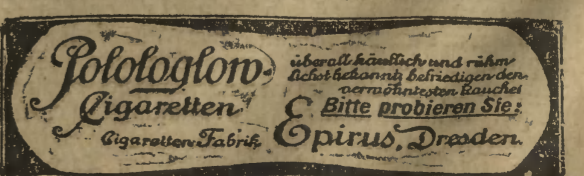 Polologlow-
Cigaretten
Cigaretten-Fabrik
überall käuflich und rühm-
lichst bekannt, befriedigen den
verwöhntesten Raucher
Bitte probieren Sie:
Epirus, Dresden.